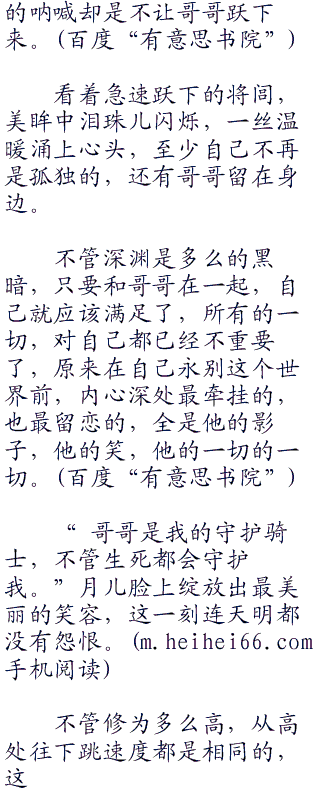 的呐喊却是不让哥哥跃下
来。(百度“有意思书院”)
看着急速跃下的将闾，
美眸中泪珠儿闪烁，一丝温
暖涌上心头，至少自己不再
是孤独的，还有哥哥留在身
边。
不管深渊是多么的黑
暗，只要和哥哥在一起，自
己就应该满足了，所有的一
切，对自己都已经不重要
了，原来在自己永别这个世
界前，内心深处最牵挂的，
也最留恋的，全是他的影
子，他的笑，他的一切的一
切。(百度“有意思书院”)
“ 哥哥是我的守护骑
士，不管生死都会守护
我。”月儿脸上绽放出最美
丽的笑容，这一刻连天明都
没有怨恨。(m.heihei66.com
手机阅读)
不管修为多么高，从高
处往下跳速度都是相同的，
这